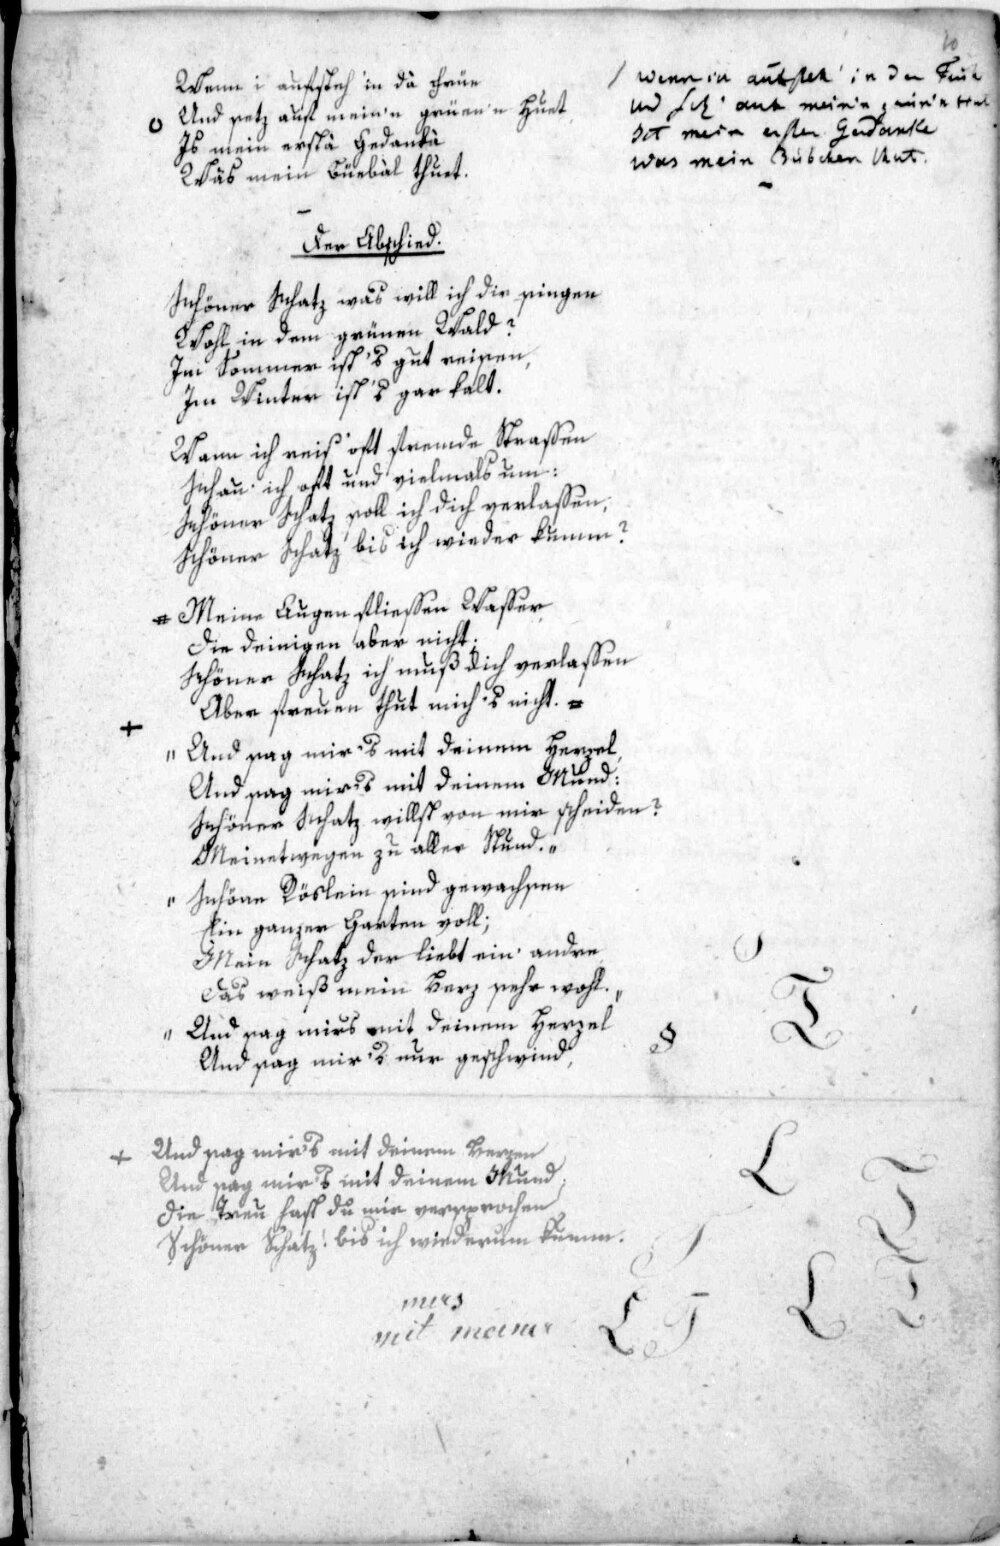 10
Wenn i aufsteh' in dà Frue
Und setz auf mein'n grüen'n Huet,
Is mein erstà Gedankà
Wàs mein Büebàl thuet.
wenn ich aufsteh' in der Früh
und setz' auf mein'n grün'n Hut
Ist mein erster Gedanke
was mein Bübchen thut.
Der Abschied.
Schöner Schatz was will ich dir singen
Wohl in dem grünen Wald?
Im Sommer ist's gut reisen,
Im Winter ist's gar kalt.
Wann ich reis' oft fremde Strassen
Schau' ich oft und vielmals um:
Schöner Schatz soll ich dich verlassen,
Schöner Schatz bis ich wieder kumm?
= Meine Augen fliessen Wasser,
Die deinigen aber nicht;
Schöner Schatz ich muß dich verlassen
Aber freuen thut mich's nicht. =
+
" Und sag mir's mit deinem Herzel,
Und sag mir's mit deinem Mund:
Schöner Schatz willst von mir scheiden?
Meinetwegen zu aller Stund. "
" Schöne Röslein sind gewachsen
Ein ganzer Garten voll;
Mein Schatz der liebt ein' andre,
Das weiß mein Herz sehr wohl. "
" Und sag mirs mit deinem Herzel
Und sag mir's nur geschwind,
+ Und sag mir's mit deinem Herzen
Und sag mir's mit deinem Mund,
Die Treu hast du mir versprochen
Schöner Schatz! bis ich wiederum kumm.
mirs
mit meiner